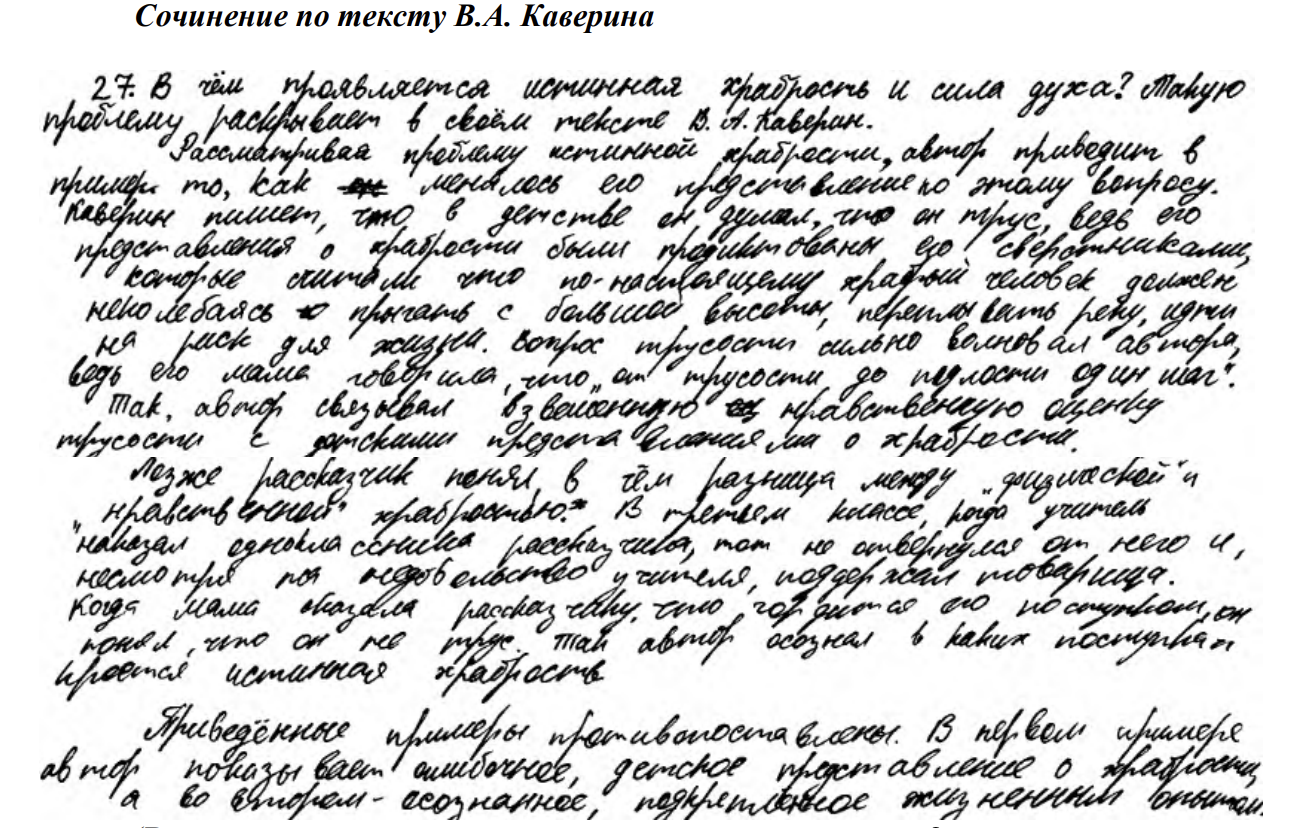 Сочинение по тексту В.А. Каверина
27. В чём проявляется истинная храбрость и сила духа? Такую
проблему раскрывает в своём тексте В. А. Каверин.
Рассматривая проблему истинной храбрости, автор приводит в
пример то, как менялось его представление по этому вопросу.
Каверин пишет, что в детстве он думал, что он трус, ведь его
представления о храбрости были продиктованы его сверстниками,
которые считали что по-настоящему храбрый человек должен
неколебаясь прыгать с большой высоты, переплывать реку, идти
на риск для жизни. Вопрос трусости сильно волновал автора,
ведь его мама говорила, что „от трусости до подлости один шаг".
Так, автор связывал взвешенную нравственную оценку
трусости с детскими представлениями о храбрости.
Позже рассказчик понял, в чём разница между „физической" и
„нравственной" храбростью. В третьем классе, когда учитель
наказал одноклассника рассказчика, тот не отвернулся от него и,
несмотря на недовольство учителя, поддержал товарища.
Когда мама сказала рассказчику, что гордится его поступком, он
понял, что он не трус. Так автор осознал в каких поступках
кроется истинная храбрость
Приведённые примеры противопоставлены. В первом примере
автор показывает ошибочное, детское представление о храбрости,
а во втором - осознанное, подкреплённое жизненным опытом.